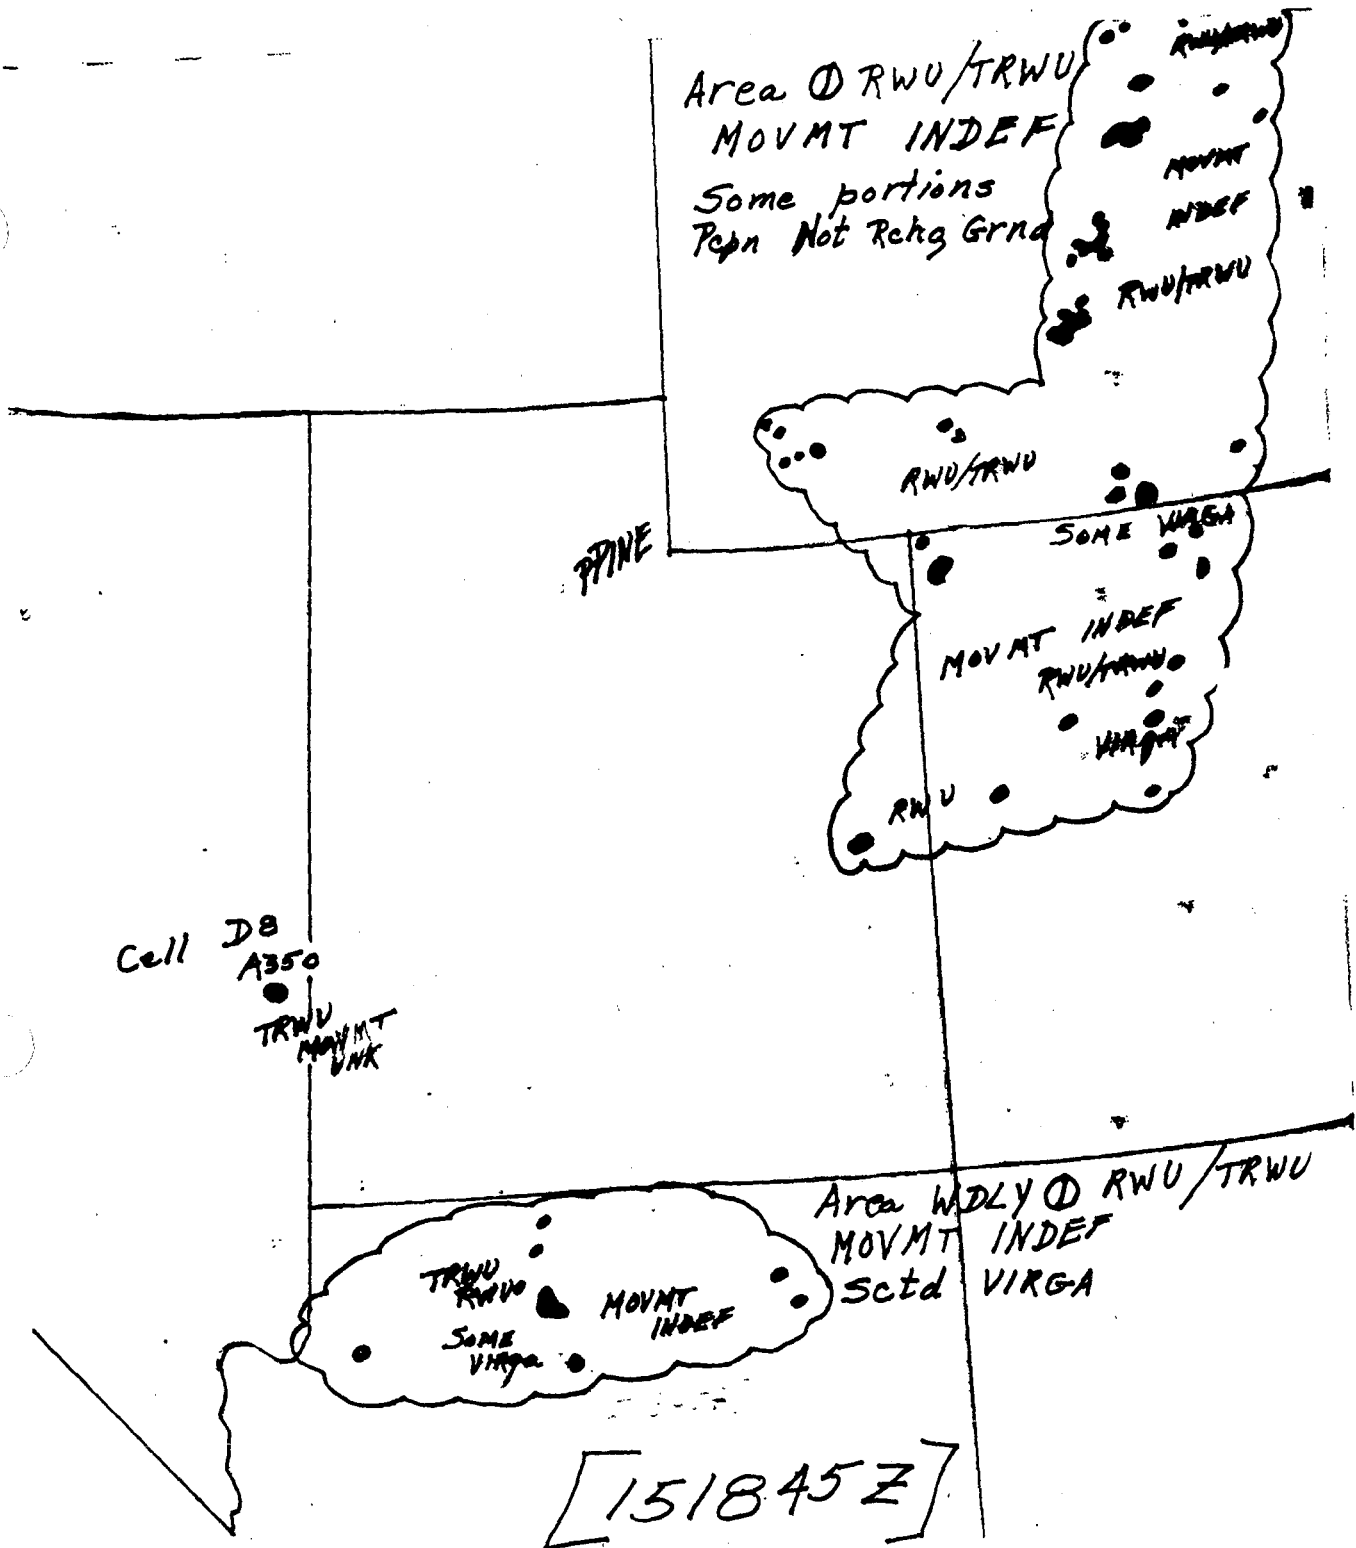 Area ① RWU/TRWU
MOVMT INDEF
Some portions
Pcpn Not Rchg Grnd
MOVMT
INDEF
RWU/TRWU
RWU/TRWU
PPINE
SOME VIRGA
MOVMT INDEF
RWU/TRWU
VIRGA
RWU
Cell D8
A350
TRWU
MOVMT
UNK
Area WDLY ① RWU/TRWU
MOVMT INDEF
Sctd VIRGA
TRWU
RWU
MOVMT
INDEF
SOME
VIRga
[151845Z]